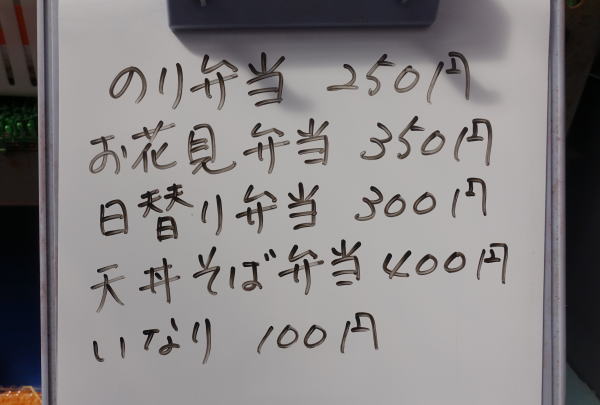 のり弁当 250円
お花見弁当 350円
日替り弁当 300円
天丼そば弁当 400円
いなり 100円